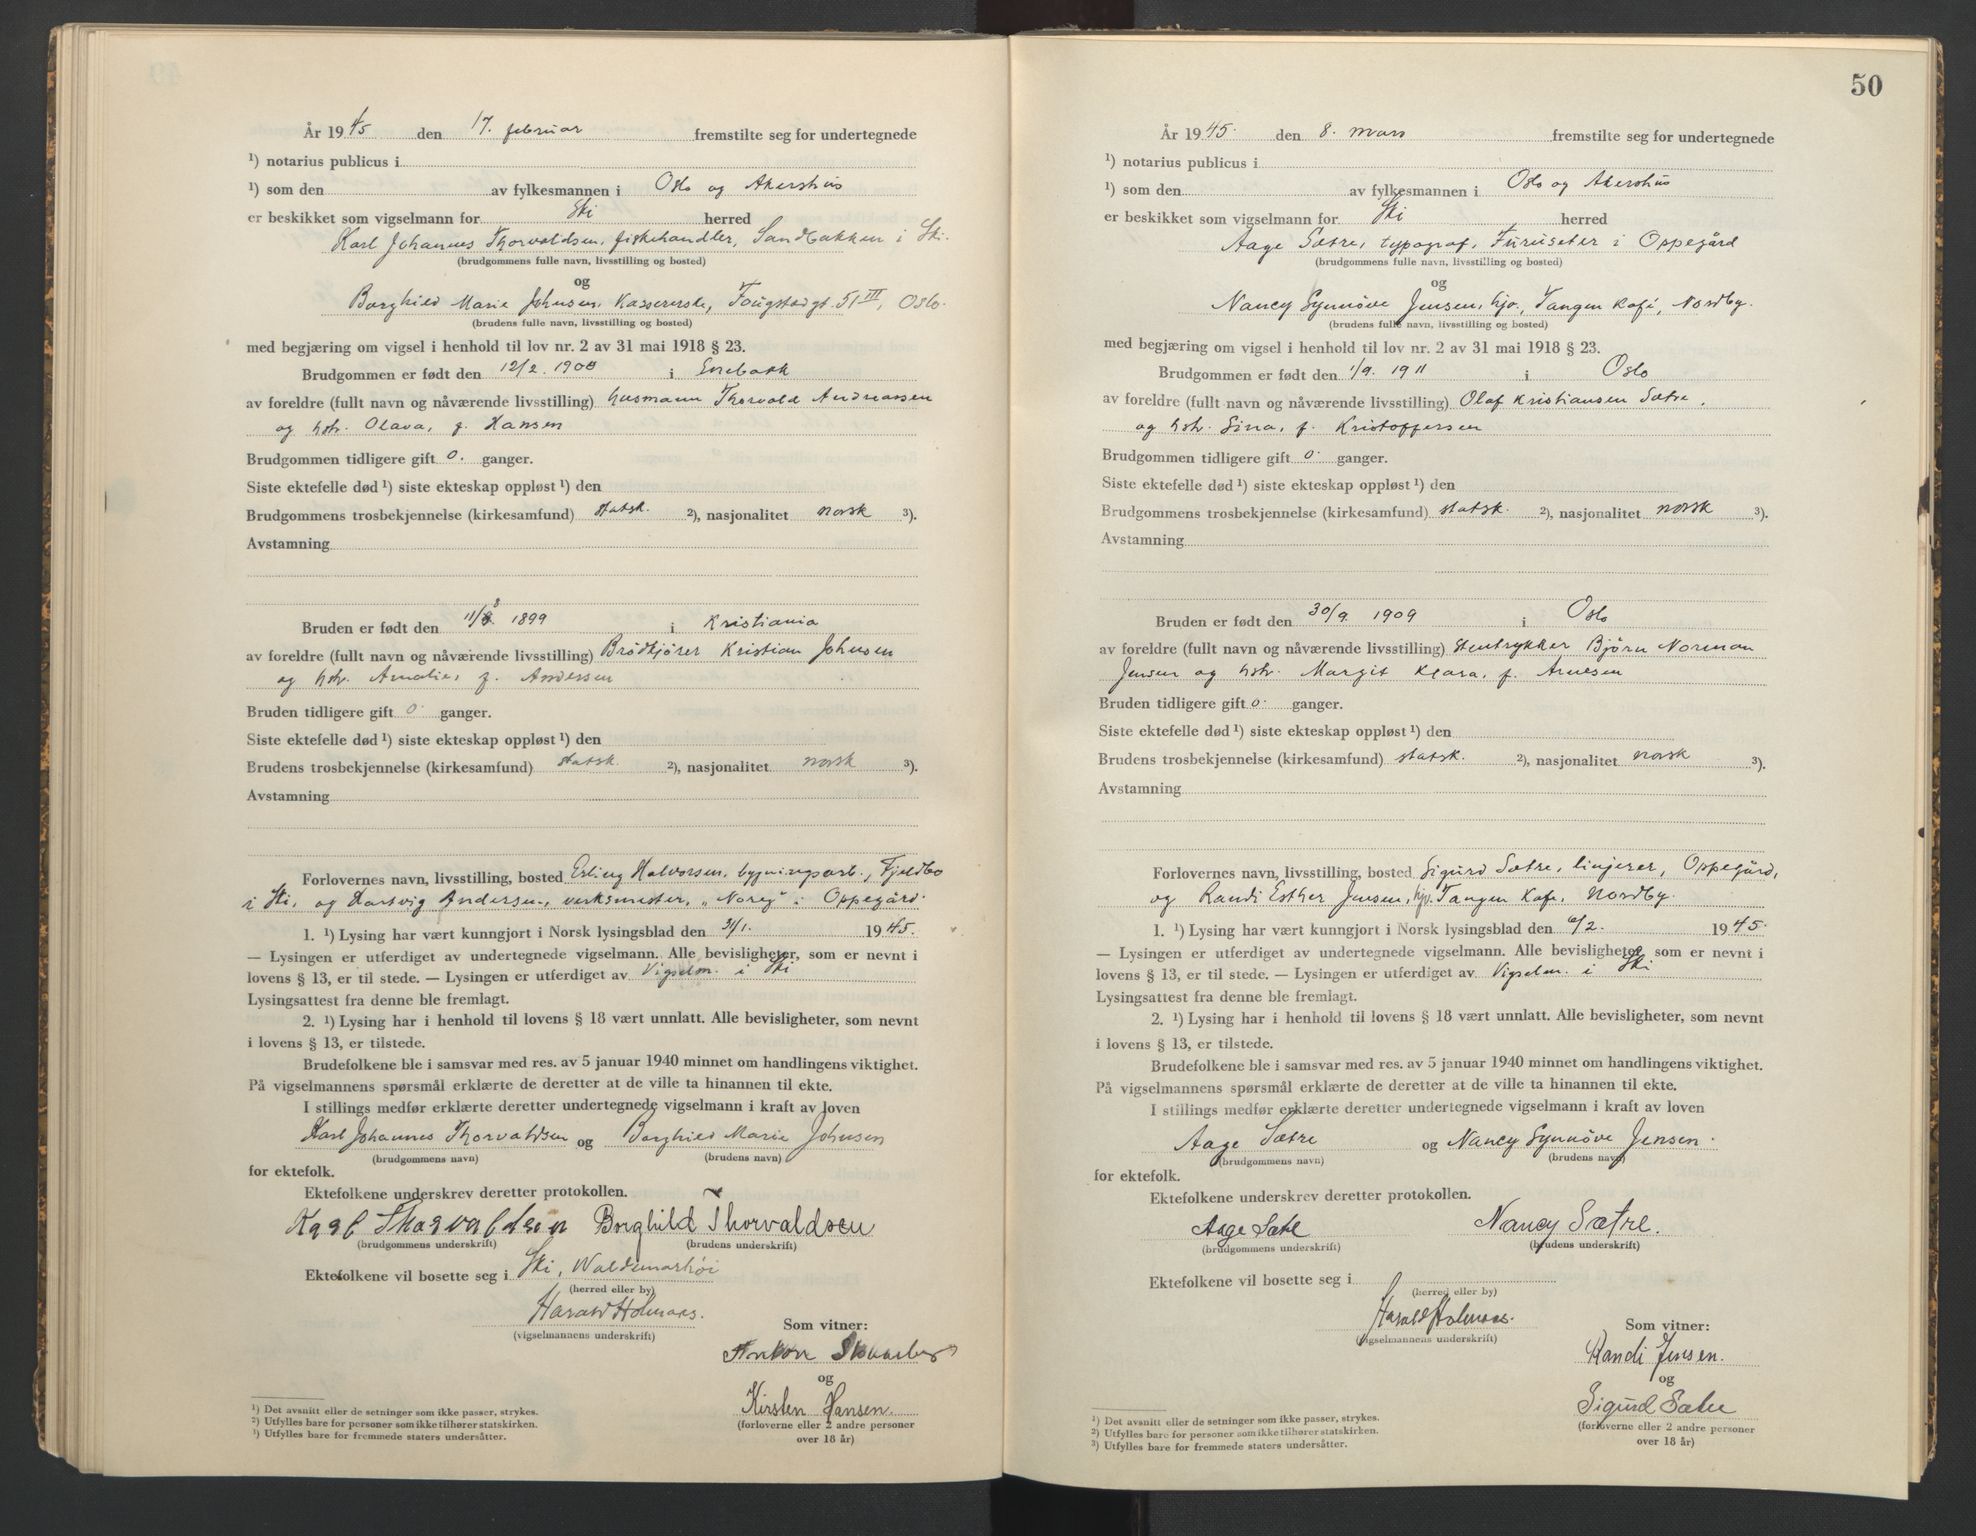 År 1945 den 17. februar fremstilte seg for undertegnede
¹) notarius publicus i
¹) som den av fylkesmannen i Oslo og Akershus
er beskikket som vigselmann for Ski herred
Karl Johannes Thorvaldsen, fiskehandler, Sandbakken i Ski.
(brudgommens fulle navn, livsstilling og bosted)
og
Borghild Marie Johnsen, Kassererske, Fougstadgt. 51 III, Oslo.
(brudens fulle navn, livsstilling og bosted)
med begjæring om vigsel i henhold til lov nr. 2 av 31 mai 1918 § 23.
Brudgommen er født den 12/2. 1900 i Enebakk
av foreldre (fullt navn og nåværende livsstilling) husmann Thorvald Andreassen
og hstr. Olava, f. Hansen
Brudgommen tidligere gift 0. ganger.
Siste ektefelle død ¹) siste ekteskap oppløst ¹) den
Brudgommens trosbekjennelse (kirkesamfund) statsk. ²), nasjonalitet norsk ³).
Avstamning
Bruden er født den 11/3 1899 i Kristiania
av foreldre (fullt navn og nåværende livsstilling) Brødkjører Kristian Johnsen
og hstr. Amalie, f. Andersen
Bruden tidligere gift 0. ganger.
Siste ektefelle død ¹) siste ekteskap oppløst ¹) den
Brudens trosbekjennelse (kirkesamfund) statsk. ²), nasjonalitet norsk ³).
Avstamning
Forlovernes navn, livsstilling, bosted Erling Halvorsen, bygningsarb., Fjeldbo
i Ski, og Hartvig Andersen, verksmester, „Noreg" i Oppegård.
1. ¹) Lysing har vært kunngjort i Norsk lysingsblad den 31/1. 1945.
— Lysingen er utferdiget av undertegnede vigselmann. Alle bevisligheter, som er nevnt i
lovens § 13, er til stede. — Lysingen er utferdiget av Vigselm. i Ski
Lysingsattest fra denne ble fremlagt.
2. ¹) Lysing har i henhold til lovens § 18 vært unnlatt. Alle bevisligheter, som nevnt
i lovens § 13, er tilstede.
Brudefolkene ble i samsvar med res. av 5 januar 1940 minnet om handlingens viktighet.
På vigselmannens spørsmål erklærte de deretter at de ville ta hinannen til ekte.
I stillings medfør erklærte deretter undertegnede vigselmann i kraft av loven
Karl Johannes Thorvaldsen og Borghild Marie Johnsen
(brudgommens navn) (brudens navn)
for ektefolk.
Ektefolkene underskrev deretter protokollen.
Karl Thorvaldsen Borghild Thorvaldsen
(brudgommens underskrift) (brudens underskrift)
Ektefolkene vil bosette seg i Ski, Waldemarhøi
(herred eller by)
Harald Holmaas.
(vigselmannens underskrift)
Som vitner:
og
Kirsten Hansen.
(forloverne eller 2 andre personer
over 18 år)
¹) Det avsnitt eller de setninger som ikke passer, strykes.
²) Utfylles bare for personer som ikke tilhører statskirken.
³) Utfylles bare for fremmede staters undersåtter.
50
År 1945. den 8. mars fremstilte seg for undertegnede
¹) notarius publicus i
¹) som den av fylkesmannen i Oslo og Akershus
er beskikket som vigselmann for Ski herred
Aage Sætre, typograf, Furuseter i Oppegård
(brudgommens fulle navn, livsstilling og bosted)
og
Nancy Synnöve Jensen, hjv, Tangen Kafé, Nordby.
(brudens fulle navn, livsstilling og bosted)
med begjæring om vigsel i henhold til lov nr. 2 av 31 mai 1918 § 23.
Brudgommen er født den 1/9. 1911 i Oslo
av foreldre (fullt navn og nåværende livsstilling) Olaf Kristiansen Sætre,
og hstr. Sina, f. Kristoffersen
Brudgommen tidligere gift 0. ganger.
Siste ektefelle død ¹) siste ekteskap oppløst ¹) den
Brudgommens trosbekjennelse (kirkesamfund) statsk. ²), nasjonalitet norsk ³).
Avstamning
Bruden er født den 30/9. 1909 i Oslo
av foreldre (fullt navn og nåværende livsstilling) Stentrykker Bjørn Norman
Jensen og hstr. Margit Klara, f. Arnesen
Bruden tidligere gift 0. ganger.
Siste ektefelle død ¹) siste ekteskap oppløst ¹) den
Brudens trosbekjennelse (kirkesamfund) statsk. ²), nasjonalitet norsk ³).
Avstamning
Forlovernes navn, livsstilling, bosted Sigurd Sætre, linjerer, Oppegård,
og Randi Esther Jensen, hjv. Tangen Kafe, Nordby.
1. ¹) Lysing har vært kunngjort i Norsk lysingsblad den 6/2. 1945.
— Lysingen er utferdiget av undertegnede vigselmann. Alle bevisligheter, som er nevnt i
lovens § 13, er til stede. — Lysingen er utferdiget av Vigselm. i Ski
Lysingsattest fra denne ble fremlagt.
2. ¹) Lysing har i henhold til lovens § 18 vært unnlatt. Alle bevisligheter, som nevnt
i lovens § 13, er tilstede.
Brudefolkene ble i samsvar med res. av 5 januar 1940 minnet om handlingens viktighet.
På vigselmannens spørsmål erklærte de deretter at de ville ta hinannen til ekte.
I stillings medfør erklærte deretter undertegnede vigselmann i kraft av loven
Aage Sætre og Nancy Synnöve Jensen.
(brudgommens navn) (brudens navn)
for ektefolk.
Ektefolkene underskrev deretter protokollen.
Aage Sætre Nancy Sætre.
(brudgommens underskrift) (brudens underskrift)
Ektefolkene vil bosette seg i
(herred eller by)
Harald Holmaas.
(vigselmannens underskrift)
Som vitner:
Randi Jensen.
og
Sigurd Sætre
(forloverne eller 2 andre personer
over 18 år)
¹) Det avsnitt eller de setninger som ikke passer, strykes.
²) Utfylles bare for personer som ikke tilhører statskirken.
³) Utfylles bare for fremmede staters undersåtter.